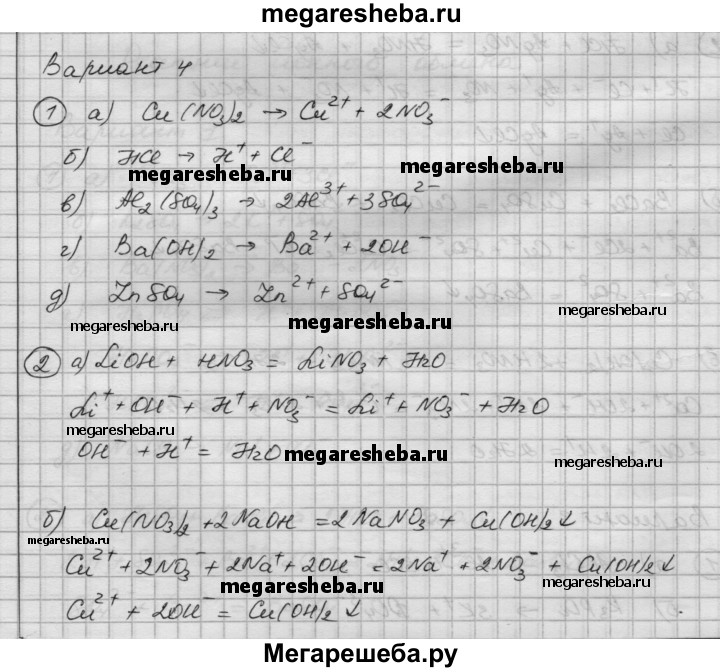 megaresheba.ru
Вариант 4
1 а) Cu(NO3)2 → Cu²⁺ + 2NO3⁻
б) HCl → H⁺ + Cl⁻
megaresheba.ru megaresheba.ru
в) Al2(SO4)3 → 2Al³⁺ + 3SO4²⁻
г) Ba(OH)2 → Ba²⁺ + 2OH⁻
д) ZnSO4 → Zn²⁺ + SO4²⁻
megaresheba.ru megaresheba.ru megaresheba.ru
2 а) LiOH + HNO3 = LiNO3 + H2O
Li⁺ + OH⁻ + H⁺ + NO3⁻ = Li⁺ + NO3⁻ + H2O
megaresheba.ru
OH⁻ + H⁺ = H2O megaresheba.ru megaresheba.ru
б) Cu(NO3)2 + 2NaOH = 2NaNO3 + Cu(OH)2↓
megaresheba.ru
Cu²⁺ + 2NO3⁻ + 2Na⁺ + 2OH⁻ = 2Na⁺ + 2NO3⁻ + Cu(OH)2↓
megaresheba.ru megaresheba.ru
Cu²⁺ + 2OH⁻ = Cu(OH)2↓
Мегарешеба.ру